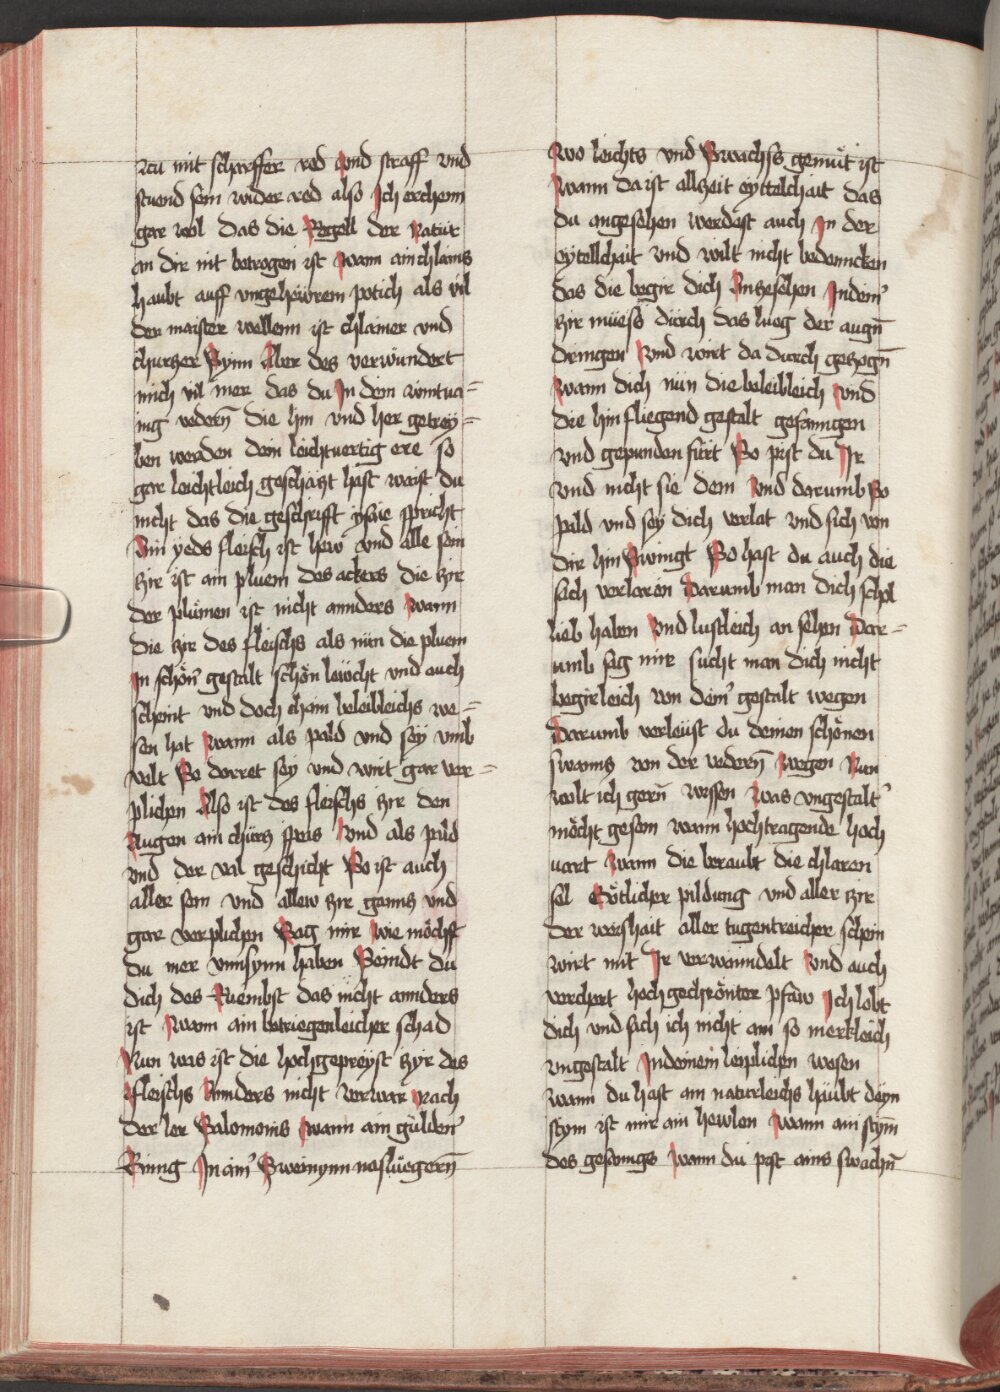 rcu mit scharffer red vnd straff vnd
stuend sein wider red also Ich erchenn
gar wol das die Regell der Natür
an dir nit betrogen ist wann ain chlains
haubt auff vngehewrem potich als vil
der maister wellenn ist chlainer vnd
churczer Synn Aber des verwundert
mich vil mer das du In dem
nig vedern̄ die hin vnd her getrey=
ben werden dein leichtuertig ere so
gar leichtleich geschäczt hast waist du
nicht das die geschrifft ysaie spricht
Ain yeds fleisch ist hew vnd alle sein
zir ist ain pluem des ackers die zir
der plümen ist nicht annders wann
die zir des fleischs als nün die pluem
In schön̄ gestalt schön lewcht vnd auch
scheint vnd doch chain beleibleichs we=
sen hat wann als pald vnd sey vmb
velt So dorret sey vnd wirt gar ver=
plichen Also ist des fleischs zir den
Augen ain chürcz speis vnd als pald
vnd der val geschicht So ist auch
aller sein vnd allew zir gancz vnd
gar verplichen Sag mir wie möchst
du mer vnnsynn haben Seindt du
dich des Ruembst das nicht annders
ist wann ain betriegenleicher schad
Nun was ist die hochgepreyst zyr des
fleischs Annders nicht verwar nach
der ler Salomonis wann ain gulden̄
Rinng In aim̄ Sweinynn nasluegern̄
Wo leichts vnd Swachss gemüt ist
Wann da ist allzeit eyttelchait das
du angesehen werdest auch In der
eytellchait vnd wilt nicht bedenncken
das die begir dich Anzesehen Indem̄
zir müess dürch das lueg der augn̄
dringen vnd wirt da durch geczogn̄
Wann dich nün die beleibleich vnd
die hin fliegend gestalt gefanngen
vnd gepunden fürt So pist du Ir
vnd nicht sie dein vnd darumb So
pald vnd sey dich verlat vnd sich von
dir hin Swingt So hast du auch die
sach verloren Darumb man dich schol
lieb haben vnd lustleich an sehen Dar=
umb sag mir sucht man dich nicht
begirleich von dein̄ gestalt wegen
Darumb verleust du deinen schönen
swanncz von der vedern̄ wegen Nun
wolt ich gern̄ wissen was vngestalt̄
möcht gesein wann hochtragende hoch
uart wann die beraubt die chlaren
sel Götlicher pildung vnd aller zir
der weishait aller tugentreicher schein
wirt mit Ir verwanndelt vnd auch
verchert hochgechrönter pfaw Ich lobt
dich vnd sach ich nicht ain so merkleich
vngestalt Indeinem leiplichen wesen
wann du hast ain naturleichs häubt deyn
stym ist mir ain hewlen wann ain stym̄
des gesanngs wann du pist ains swachn̄